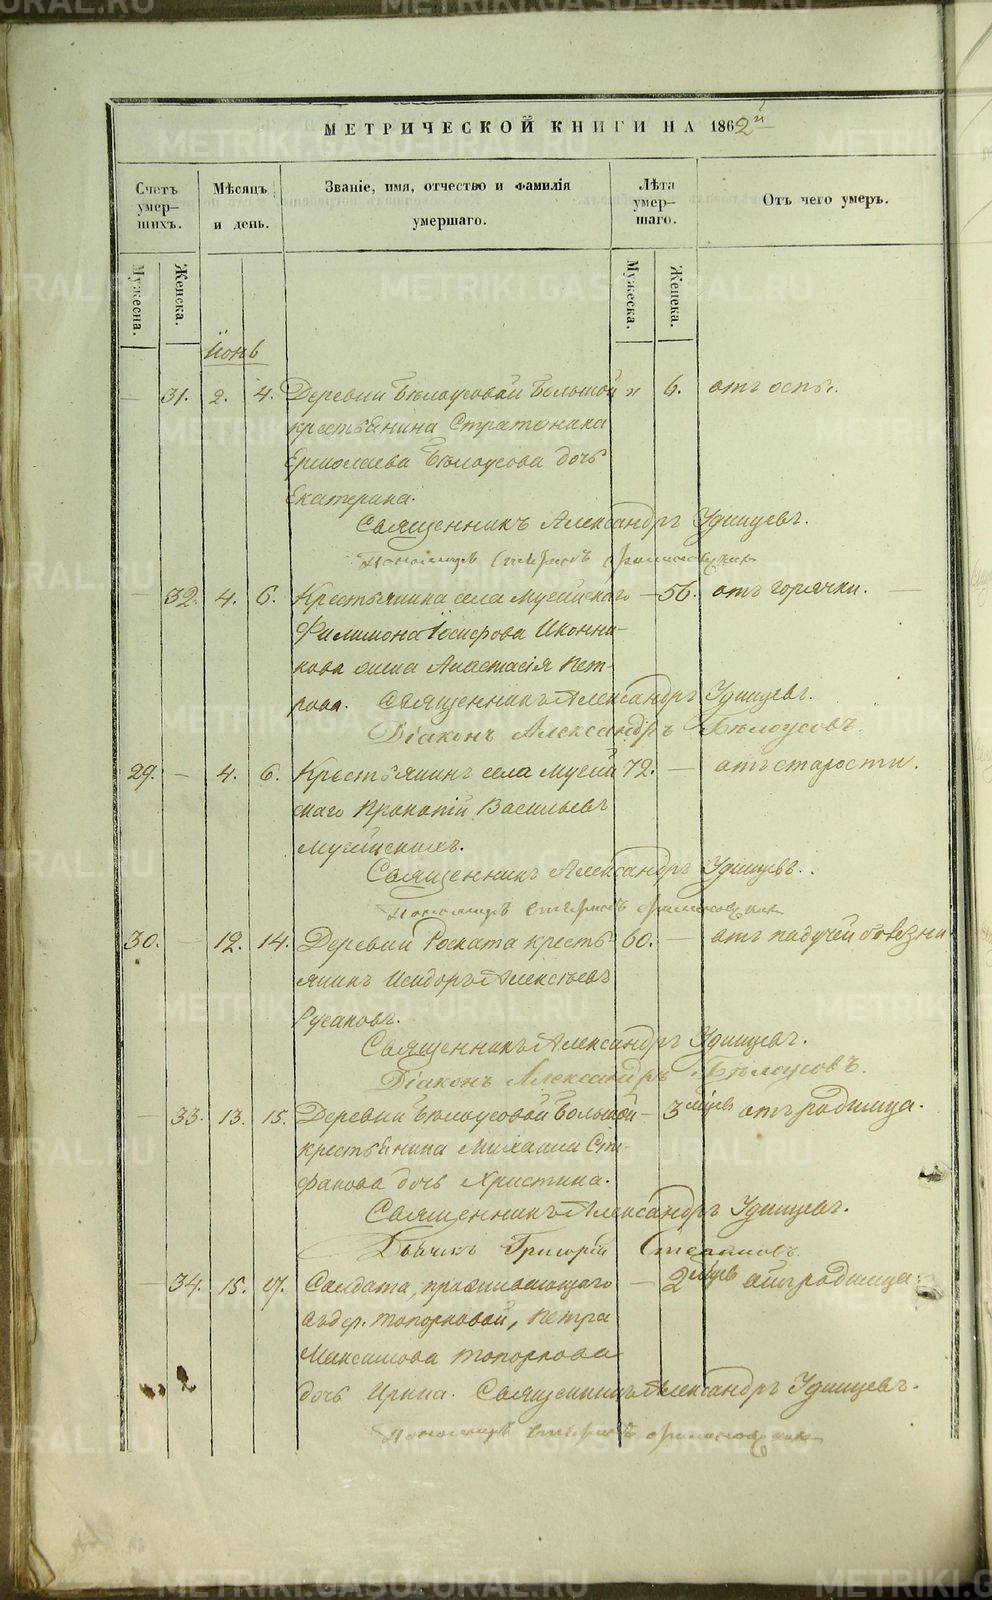 МЕТРИЧЕСКОЙ КНИГИ НА 1862й
Счетъ умер-шихъ. Мѣсяцъ и день. Званіе, имя, отчество и фамилія умершаго. Лѣта умер-шаго. Отъ чего умеръ.
Мужеска. Женска. Мужеска. Женска.
Іюнь
— 31. 2. 4. Деревни Бѣлоусовой Большой „ 6. отъ оспы.
крестьянина Стратоника
Ермолаева Бѣлоусова дочь
Екатерина.
Священникъ Александръ Удинцевъ.
Пономарь
— 32. 4. 6. Крестьянина села Мугайскаго — 56. отъ горячки. —
Филимона Іосифова Иконни-
кова жена Анастасія Пет-
рова. Священникъ Александръ Удинцевъ.
Діаконъ Александръ Бѣлоусовъ.
29. — 4. 6. Крестьянинъ села Мугай 72. — отъ старости.
скаго Прокопій Васильевъ
Мугайскихъ.
Священникъ Александръ Удинцевъ.
Пономарь
30. — 12. 14. Деревни Роската кресть 60. — отъ падучей болѣзни
янинъ Исидоръ Алексѣевъ
Русаковъ.
Священникъ Александръ Удинцевъ.
Діаконъ Александръ Бѣлоусовъ.
— 33. 13. 15. Деревни Бѣлоусовой Большой — 3 мѣсяц отъ родимца.
крестьянина Михаила Сте-
фанова дочь Христина.
Священникъ Александръ Удинцевъ.
Дьячекъ Григорій Степановъ.
— 34. 15. 17. Солдата, проживающаго — 2 мѣсяц отъ родимца.
въ дер. Топорковой, Петра
Максимова Топоркова
дочь Ирина. Священникъ Александръ Удинцевъ.
Пономарь
2
METRIKI.GASO-URAL.RU